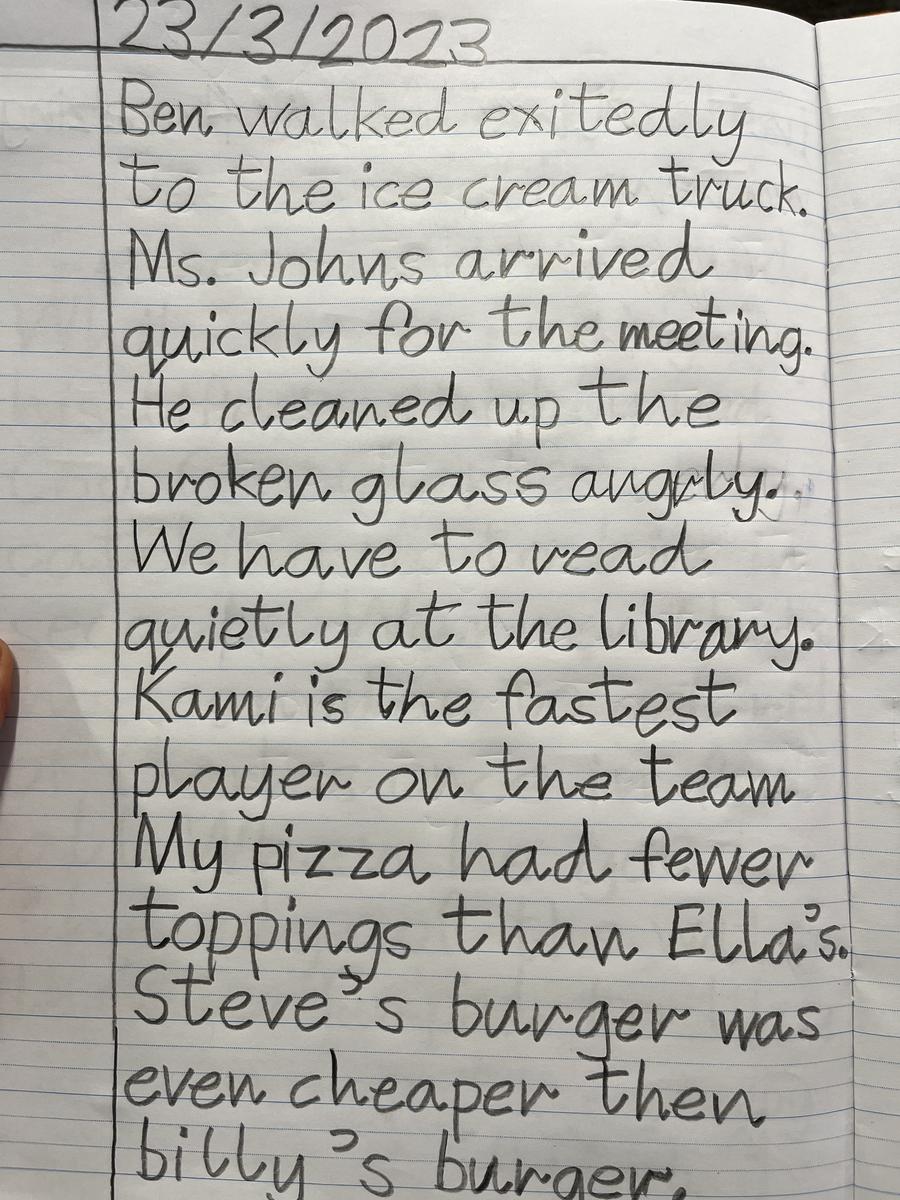 23/3/2023
Ben walked exitedly
to the ice cream truck.
Ms. Johns arrived
quickly for the meeting.
He cleaned up the
broken glass angrly.
We have to read
quietly at the library.
Kami is the fastest
player on the team
My pizza had fewer
toppings than Ella's.
Steve's burger was
even cheaper then
billy's burger.